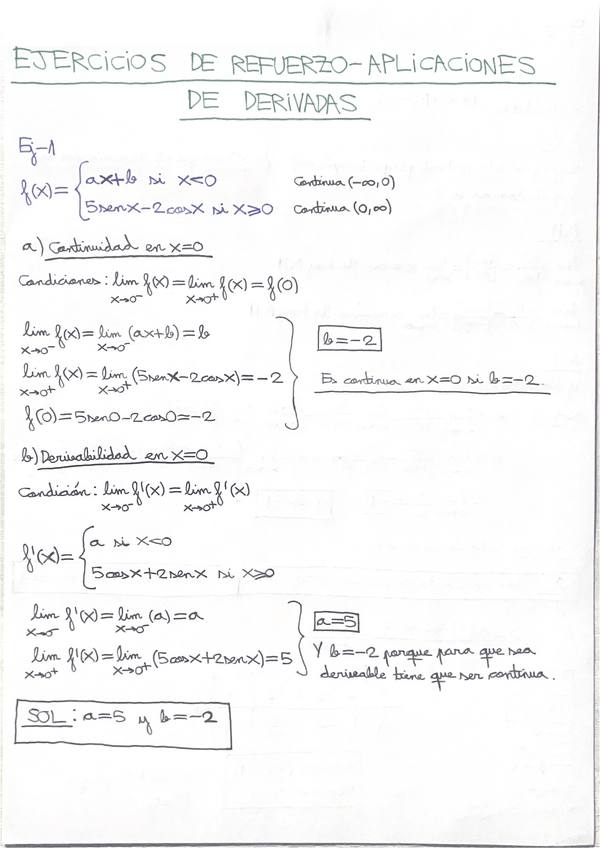 EJERCICIOS DE REFUERZO-APLICACIONES
DE DERIVADAS
Ej-1
f(x)= { ax+b si x<0 Continua (-∞,0)
5senx-2cosx si x≥0 Continua (0,∞)
a) Continuidad en x=0
Condiciones: lim x→0⁻ f(x)= lim x→0⁺ f(x)=f(0)
lim x→0⁻ f(x)= lim x→0⁻ (ax+b)=b
b=-2
lim x→0⁺ f(x)= lim x→0⁺ (5senx-2cosx)=-2
Es continua en x=0 si b=-2.
f(0)=5sen0-2cos0=-2
b) Derivabilidad en x=0
Condición: lim x→0⁻ f'(x)= lim x→0⁺ f'(x)
f'(x)= { a si x<0
5cosx+2senx si x≥0
lim x→0⁻ f'(x)= lim x→0⁻ (a)=a
a=5
lim x→0⁺ f'(x)= lim x→0⁺ (5cosx+2senx)=5
Y b=-2 porque para que sea
deriveable tiene que ser continua.
SOL: a=5 y b=-2